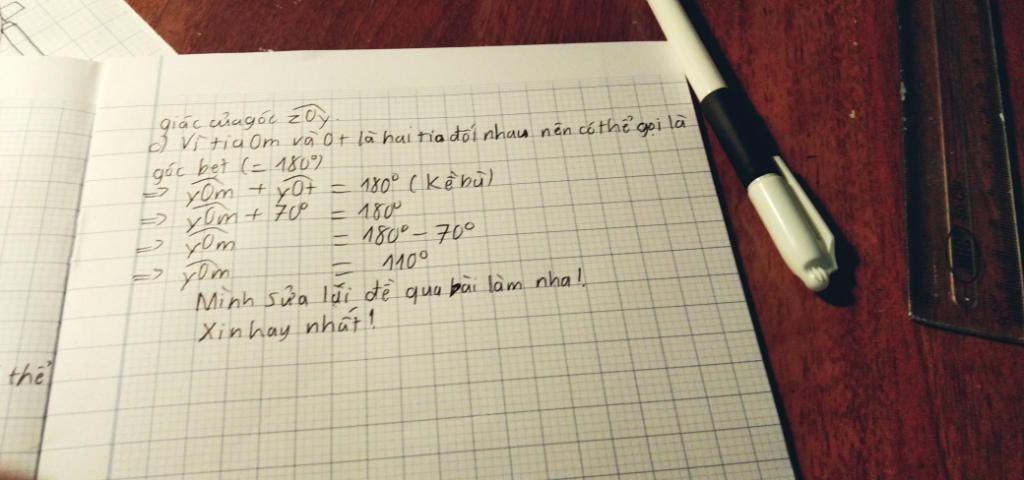 giác của góc zOy.
c) Vì tia Om và Ot là hai tia đối nhau nên có thể gọi là
góc bẹt (= 180°)
=> yOm + yOt = 180° (Kề bù)
=> yOm + 70° = 180°
=> yOm = 180° - 70°
=> yOm = 110°
Mình sửa lại đề qua bài làm nha!
Xin hay nhất!
thể